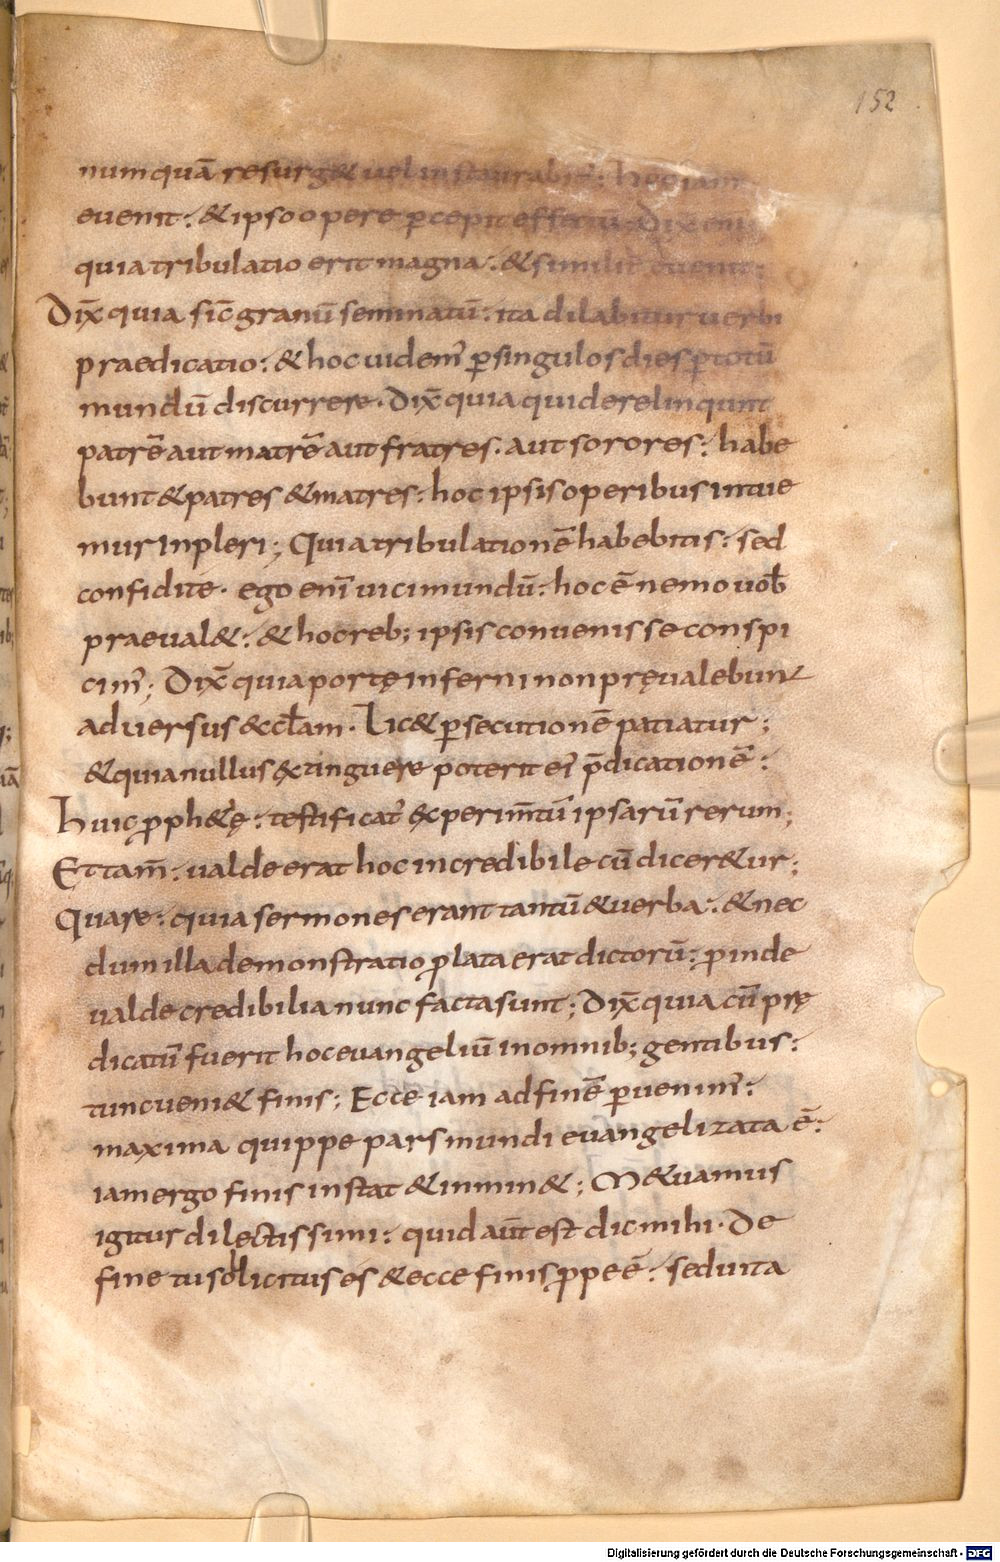 152
numquā resurg& uel instaurabit⹎ hec iam
euenit⹎ & ipso opere ꝑcepit effectū⹎ Dix̄ eni
quia tribulatio erit magna⹎ & similit̄ euenit⹎
Dix̄ quia sic̄ granū seminatū⹎ ita dilabitur uerbi
praedicatio⹎ & hoc uidem̄ ꝑ singulos dies ꝑ totū
mundū discurrere. Dix̄ quia qui derelinqunt
patrē aut matrē aut fratres. aut sorores⹎ habe
bunt & patres & matres⹎ hoc ipsis operibus intue
mur inpleri; Quia tribulationē habebitis⹎ sed
confidite. ego enī uici mundū⹎ hoc ē nemo uob̄
praeual&⹎ & hoc reb; ipsis conuenisse conspi
cim̄; Dix̄ quia portę inferni non pręualebunt
aduersus &cl̄am. Lic& ꝑsecutionē patiatur;
& quia nullus &tinguere poterit ei᾽ p̄dicationē⹎
Huic ꝓph&ę⹎ testificat᾽ experim̄tū ipsarū rerum;
Et tam̄⹎ ualde erat hoc incredibile cū dicer&ur;
Quare⹎ quia sermones erant tantū & uerba⹎ & nec
dum illa demonstratio ꝓlata erat dictorū⹎ ꝓinde
ualde credibilia nunc facta sunt; Dix̄ quia cū prę
dicatū fuerit hoc euangeliū in omnib; gentibus⹎
tunc ueni& finis; Ecce iam ad finē ꝑuenim̄⹎
maxima quippe pars mundi euangelizata ē⹎
iam ergo finis instat & inmin&; M&uamus
igitur dilectissimi⹎ quid aūt est dic mihi. De
fine tu sollicitus es & ecce finis ꝓpe ē⹎ sed uita
Digitalisierung gefördert durch die Deutsche Forschungsgemeinschaft - DFG